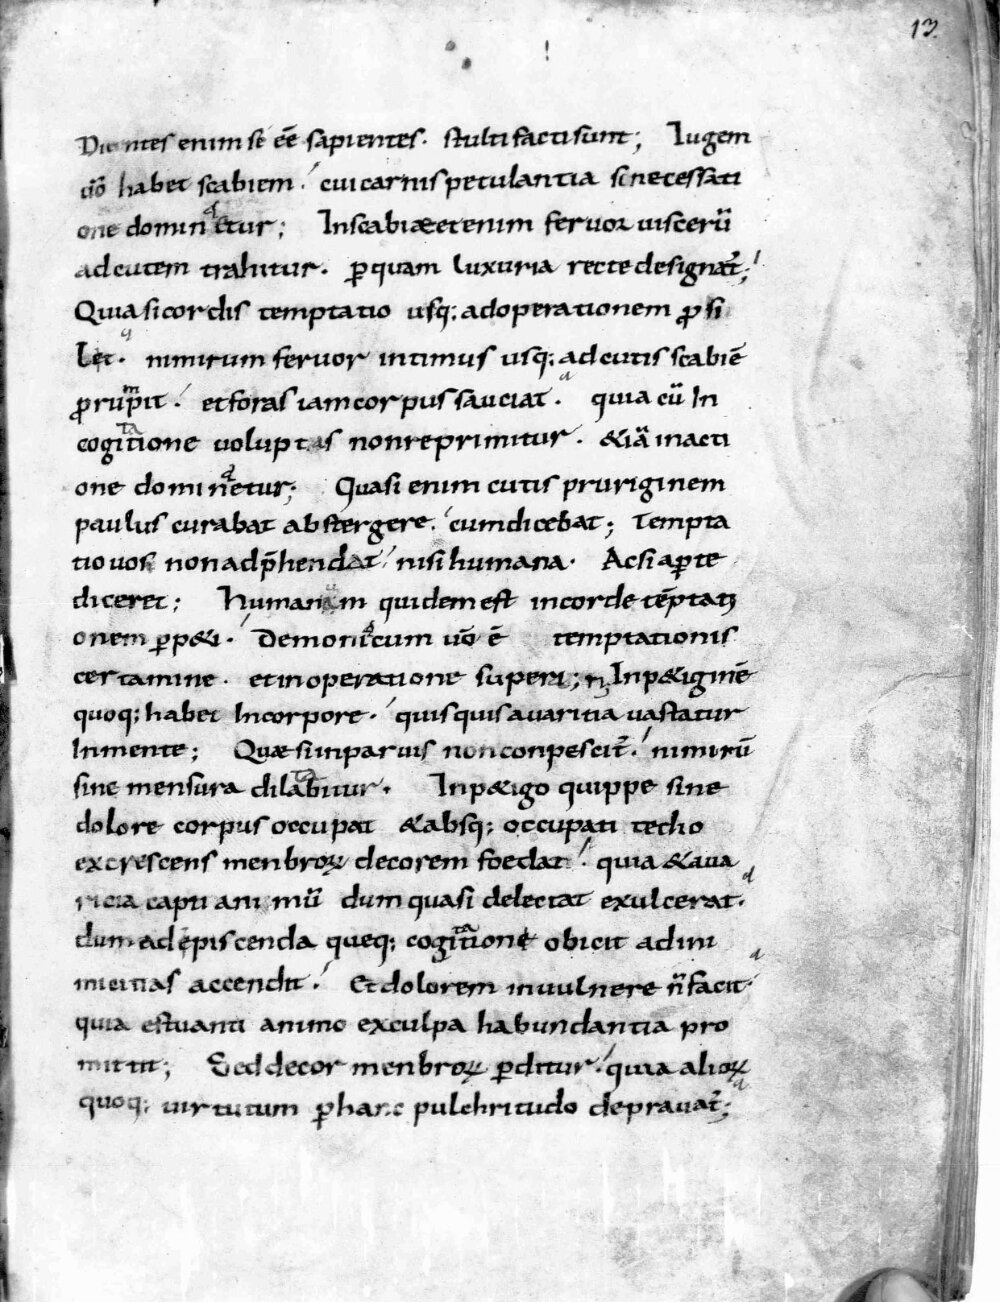 13.
Dicentes enim se eē sapientes. stulti facti sunt; Iugem
uō habet scabiem. cui carnis petulantia sine cessati
one dominetur; In scabiae etenim feruor uiscerū
ad cutem trahitur. ꝑ quam luxuria recte designat̄;
Quia si cordis temptatio usq; ad operationem ꝓsi
let. nimirum feruor intimus usq; ad cutis scabiē
ꝓrūpit. et foras iam corpus sauciat. quia cū In
cogitatione uoluptas non reprimitur. &iā in acti
one dominetur; Quasi enim cutis pruriginem
paulus curabat abstergere. cum dicebat; Tempta
tio uos non adp̄hendat nisi humana. Ac si aꝑte
diceret; humanum quidem est in corde tēptati
onem ꝑp&i. Demonicum uō ē temptationis
certamine. et in operatione superi; Inp&iginē
quoq; habet In corpore. quisquis auaritia uastatur
In mente; Quae si in paruis non conpescit̄. nimirū
sine mensura dilabitur. Inp&igo quippe sine
dolore corpus occupat &absq; occupati tedio
excrescens menbroꝝ decorem foedat. quia &aua
ricia capti animū dum quasi delectat exulcerat.
dum adepiscenda queq; cogitatione obicit ad ini
micitias accendit. Et dolorem in uulnere n̄ facit
quia estuanti animo ex culpa habundantia pro
mittit; Sed decor menbroꝝ ꝑditur. quia alioꝝ
quoq; uirtutum ꝑ hanc pulchritudo deprauat̄;